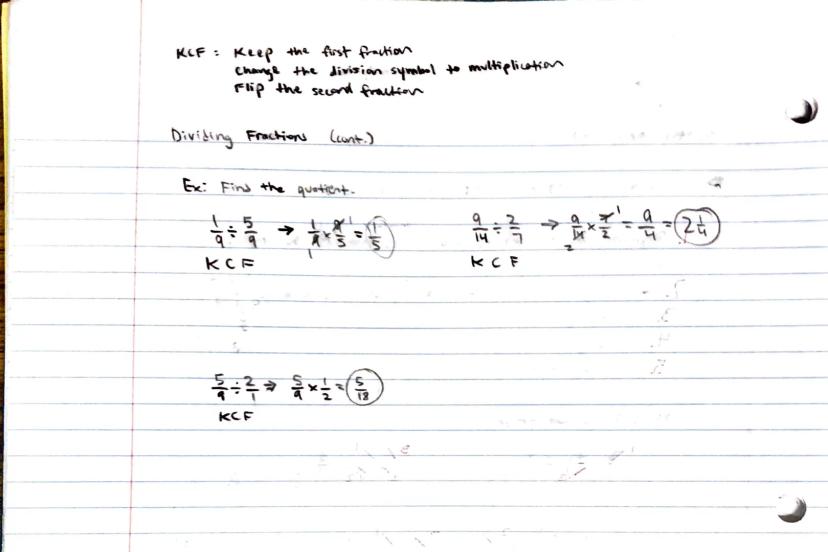 KCF : Keep the first fraction
Change the division symbol to multiplication
Flip the second fraction
Dividing Fractions (cont.)
Ex: Find the quotient.
1/9 ÷ 5/9 → 1/9 × 9/5 = 1/5
1 1
KCF
9/14 ÷ 2/7 → 9/14 × 7/2 = 9/4 = 2 1/4
2 1
KCF
5/9 ÷ 2/1 → 5/9 × 1/2 = 5/18
KCF